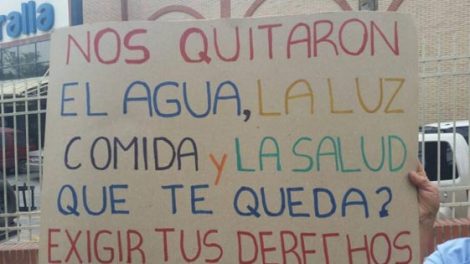 ralla
NOS QUITARON
EL AGUA, LA LUZ
COMIDA y LA SALUD
QUE TE QUEDA?
EXIGIR TUS DERECHOS